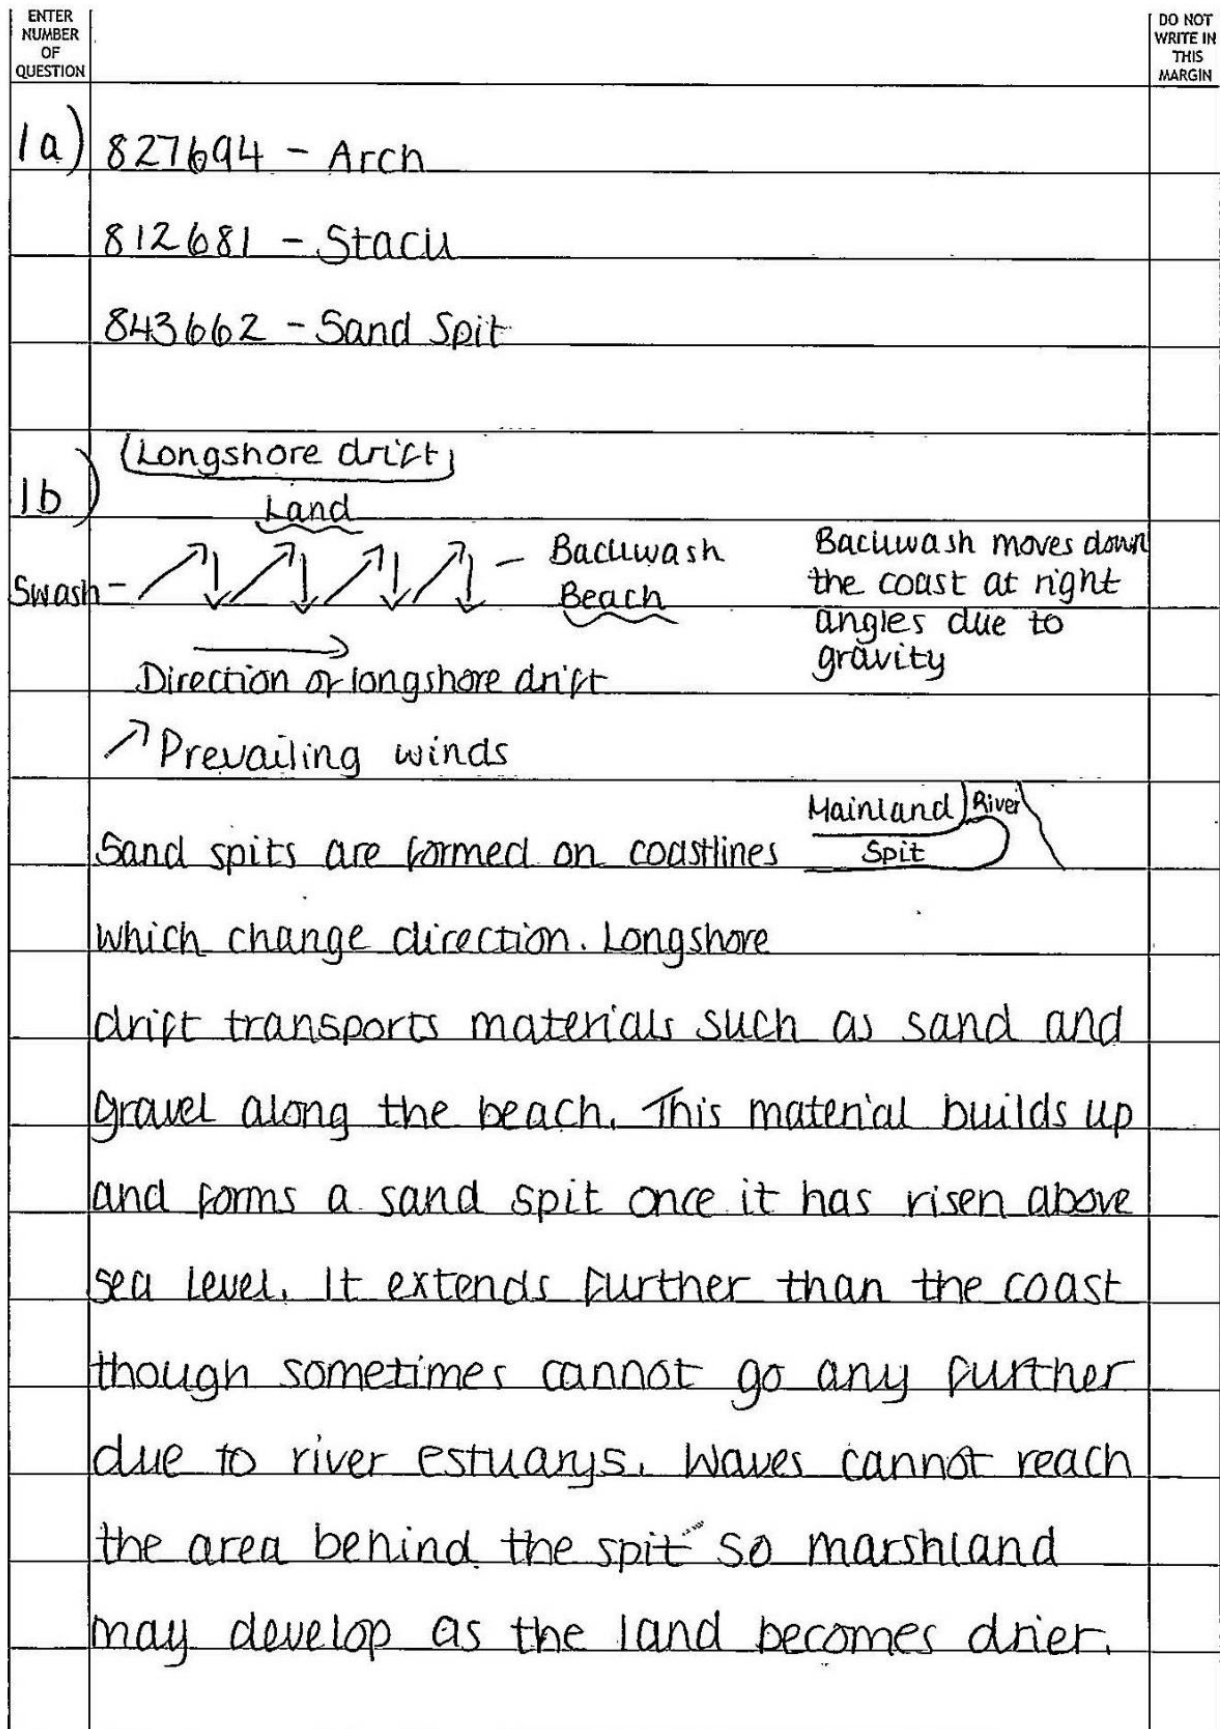 ENTER
NUMBER
OF
QUESTION
DO NOT
WRITE IN
THIS
MARGIN
1a) 827694 - Arch
812681 - Stack
843662 - Sand Spit
1b) (Longshore drift)
Land
Swash -
- Backwash
Beach
Backwash moves down
the coast at right
angles due to
gravity
Direction of longshore drift
Prevailing winds
Mainland River
Spit
Sand spits are formed on coastlines
which change direction. Longshore
drift transports materials such as sand and
gravel along the beach. This material builds up
and forms a sand spit once it has risen above
sea level. It extends further than the coast
though sometimes cannot go any further
due to river estuarys. Waves cannot reach
the area behind the spit so marshland
may develop as the land becomes drier.